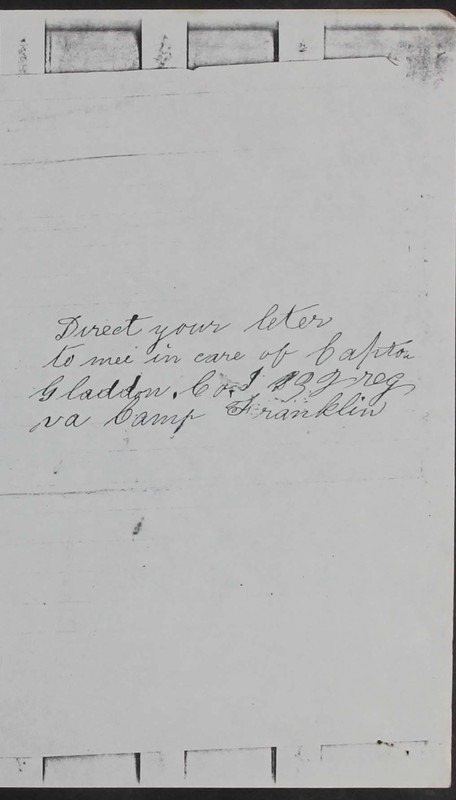 Direct your leter
to mee in care of Capton
Gladdon Co. I 392 reg
va Camp Franklin